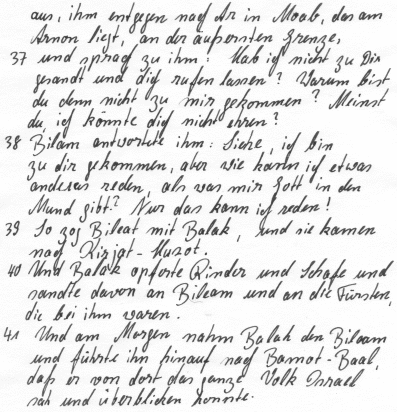 aus, ihm entgegen nach Ar in Moab, das am
Arnon liegt, an der äußersten Grenze,
37 und sprach zu ihm: Hab ich nicht zu Dir
gesandt und dich rufen lassen? Warum bist
du denn nicht zu mir gekommen? Meinst
du, ich könnte dich nicht ehren?
38 Bileam antwortete ihm: Siehe, ich bin
zu dir gekommen, aber wie kann ich etwas
anderes reden, als was mir Gott in den
Mund gibt? Nur das kann ich reden!
39 So zog Bileat mit Balak, und sie kamen
nach Kirjat-Huzot.
40 Und Balak opferte Rinder und Schafe und
sandte davon an Bileam und an die Fürsten,
die bei ihm waren.
41 Und am Morgen nahm Balak den Bileam
und führte ihn hinauf nach Bamot-Baal,
daß er von dort das ganze Volk Israel
sah und überblicken konnte.